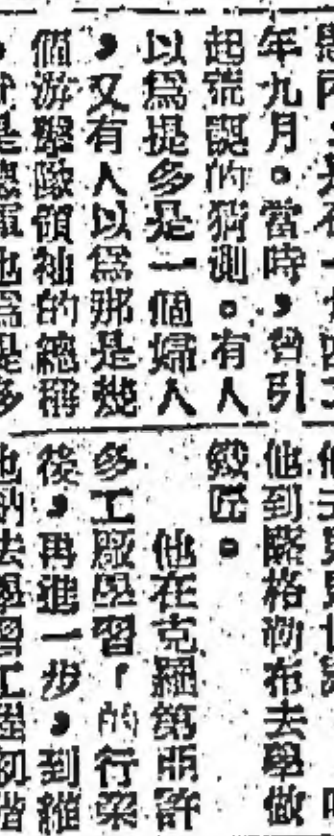 年九月。當時，曾引
起荒謬的猜測。有人
以爲提多是一個婦人
，又有人以爲那是幾
個游擊隊領袖的總稱
他到薩格勒布去學做
匠。
他在克羅第亞許
多工廠學習「的行業
後，再進一步，到維
也納去學習工程初階